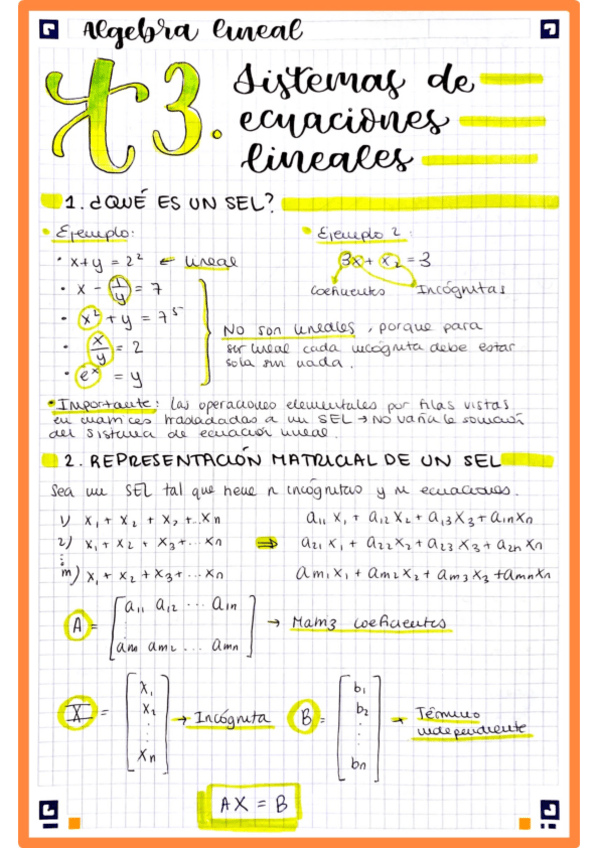 Algebra lineal
t3. Sistemas de
ecuaciones
lineales
1. ¿QUÉ ES UN SEL?
• Ejemplo:
• x+y = 2² ← lineal
• x - 1/y = 7
• x² + y = 7⁵
• x/y = 2
• eˣ = y
No son lineales, porque para
ser lineal cada incógnita debe estar
sola sin nada.
• Ejemplo 2:
3x + x₂ = 3
Coeficientes Incógnitas
• Importante: las operaciones elementales por filas vistas
en matrices trasladadas a un SEL → NO varía la solución
del sistema de ecuación lineal.
2. REPRESENTACIÓN MATRICIAL DE UN SEL
Sea un SEL tal que tiene n incógnitas y m ecuaciones.
1) x₁ + x₂ + x₂ + ... xn a₁₁ x₁ + a₁₂ x₂ + a₁₃ x₃ + a₁n xn
2) x₁ + x₂ + x₃ + ... xn ⇒ a₂₁ x₁ + a₂₂ x₂ + a₂₃ x₃ + a₂n xn
⋮
m) x₁ + x₂ + x₃ + ... xn am₁ x₁ + am₂ x₂ + am₃ x₃ + amn xn
A = [a₁₁ a₁₂ ... a₁n
am₁ am₂ ... amn] → Matriz coeficientes
X = [x₁ x₂ ⋮ xn] → Incógnita
B = [b₁ b₂ ⋮ bn] → Término
independiente
AX = B